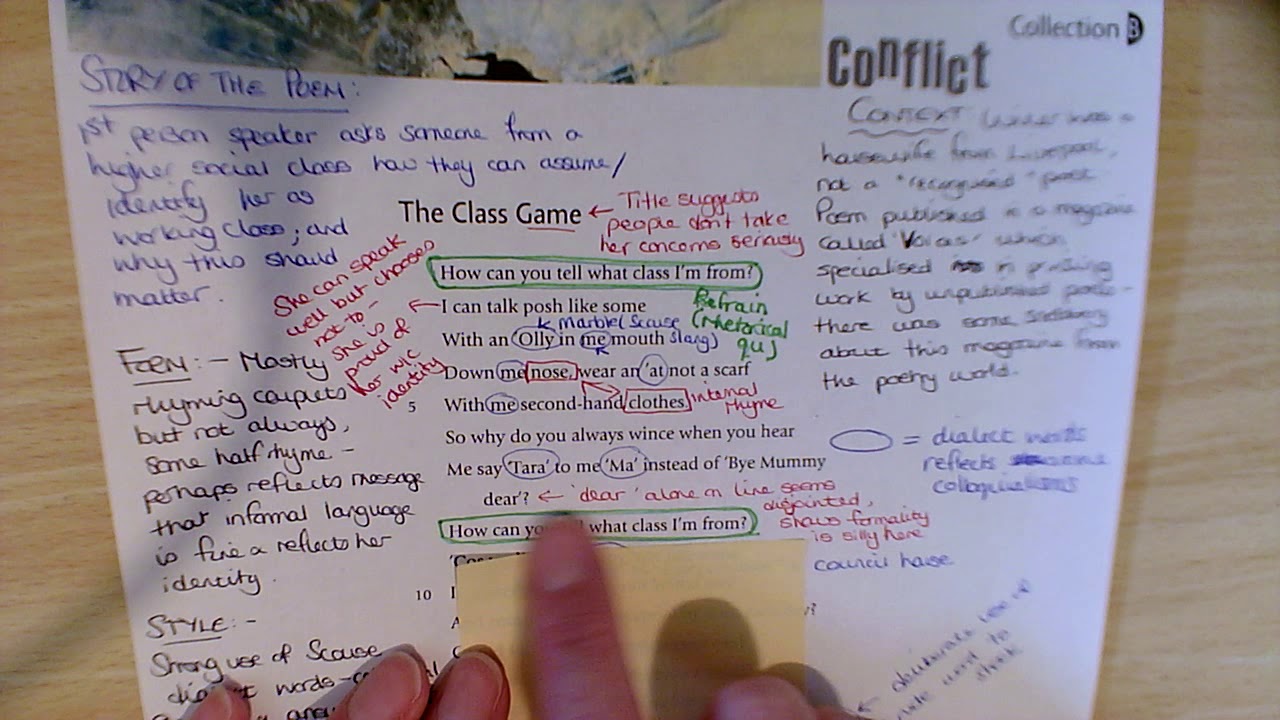 Collection B
Conflict
STORY OF THE POEM:
1st person speaker asks someone from a
higher social class how they can assume/
identify her as
working class, and
why this should
matter.
FORM:- Mostly
rhyming couplets
but not always,
some half rhyme -
perhaps reflects message
that informal language
is fine & reflects her
identity.
STYLE:-
Strong use of Scouse
words-
The Class Game
← Title suggests
people don't take
her concerns seriously
She can speak
well but chooses
not to -
she is
proud of
her w/c
identity
How can you tell what class I'm from?
I can talk posh like some
With an 'Olly in me mouth
Down me nose, wear an 'at not a scarf
5 With me second-hand clothes
So why do you always wince when you hear
Me say 'Tara' to me 'Ma' instead of 'Bye Mummy
dear'?
How can you tell what class I'm from?
10 I
Refrain
(rhetorical
qu)
Marble (Scouse
slang)
internal
rhyme
← 'dear' alone on line seems
disjointed,
shows formality
is silly here
council house
CONTEXT
housewife from Liverpool,
not a "recognised" poet
Poem published in a magazine
called 'Voices' which
specialised in
work by unpublished poets -
there was some snobbery
about this magazine from
the poetry world.
= dialect words
reflects
colloquialisms
use of
word to